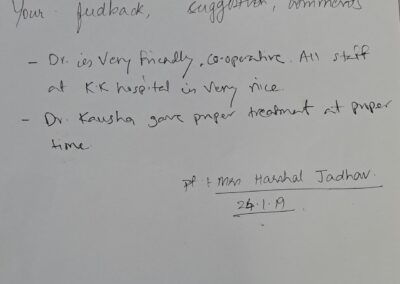 Your fudback, suggestion, comments
- Dr. is very friendly, co-operative. All staff
at KK hospital is very nice.
- Dr. Kausha gave proper treatment at proper
time.
Mrs Harshal Jadhav.
24.1.19